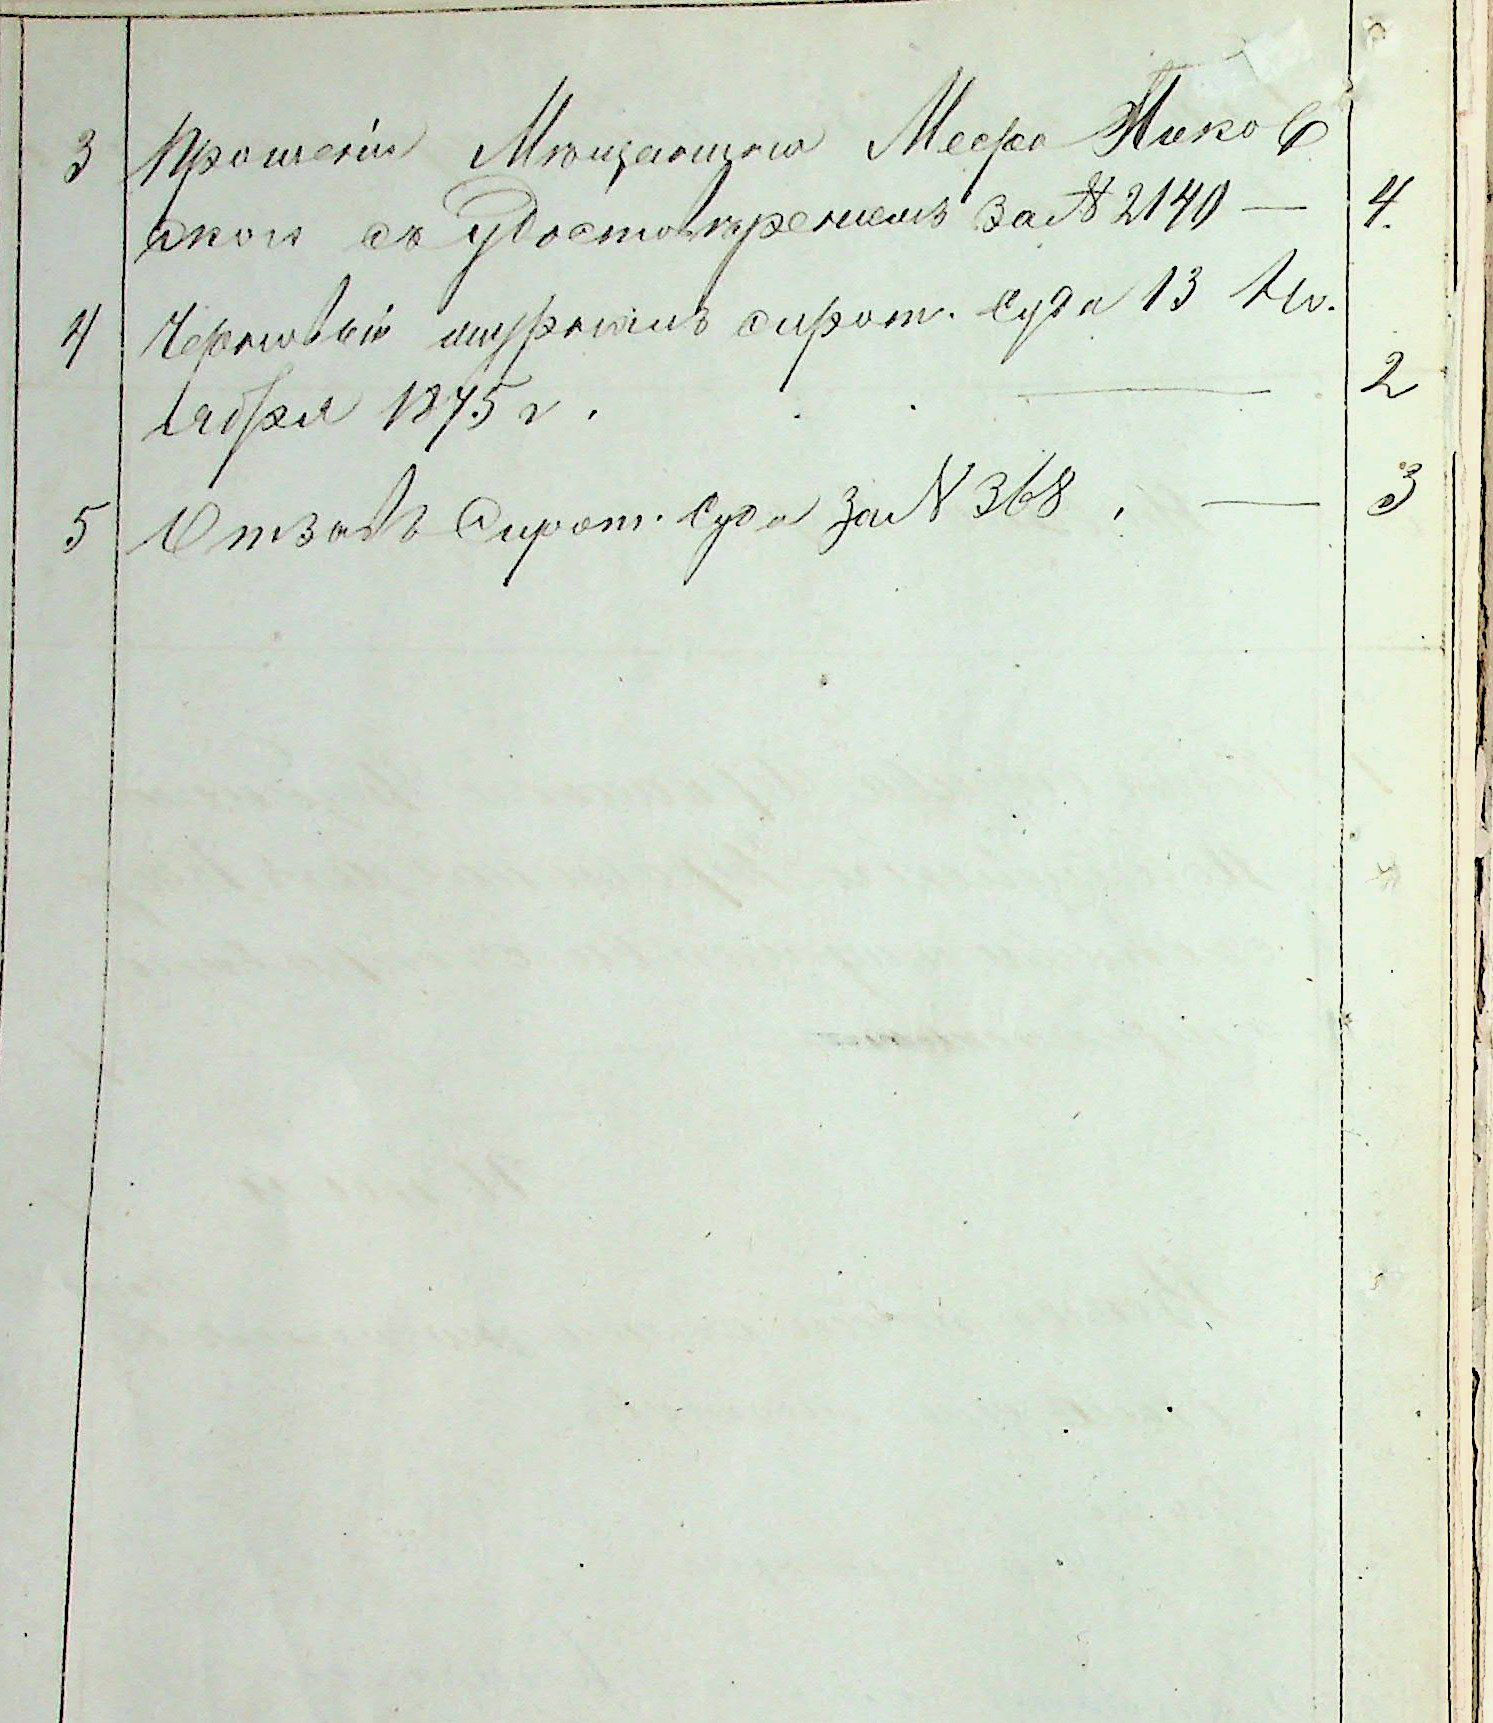 3 Прошенія Мѣщанина Меера Пиков
скаго съ удостовѣреніемъ за № 2140 — 4.
4 Черновый журналъ сирот. Суда 13 Но.
ября 1875 г. — 2
5 Отзывъ Сирот. Суда за № 368. — 3